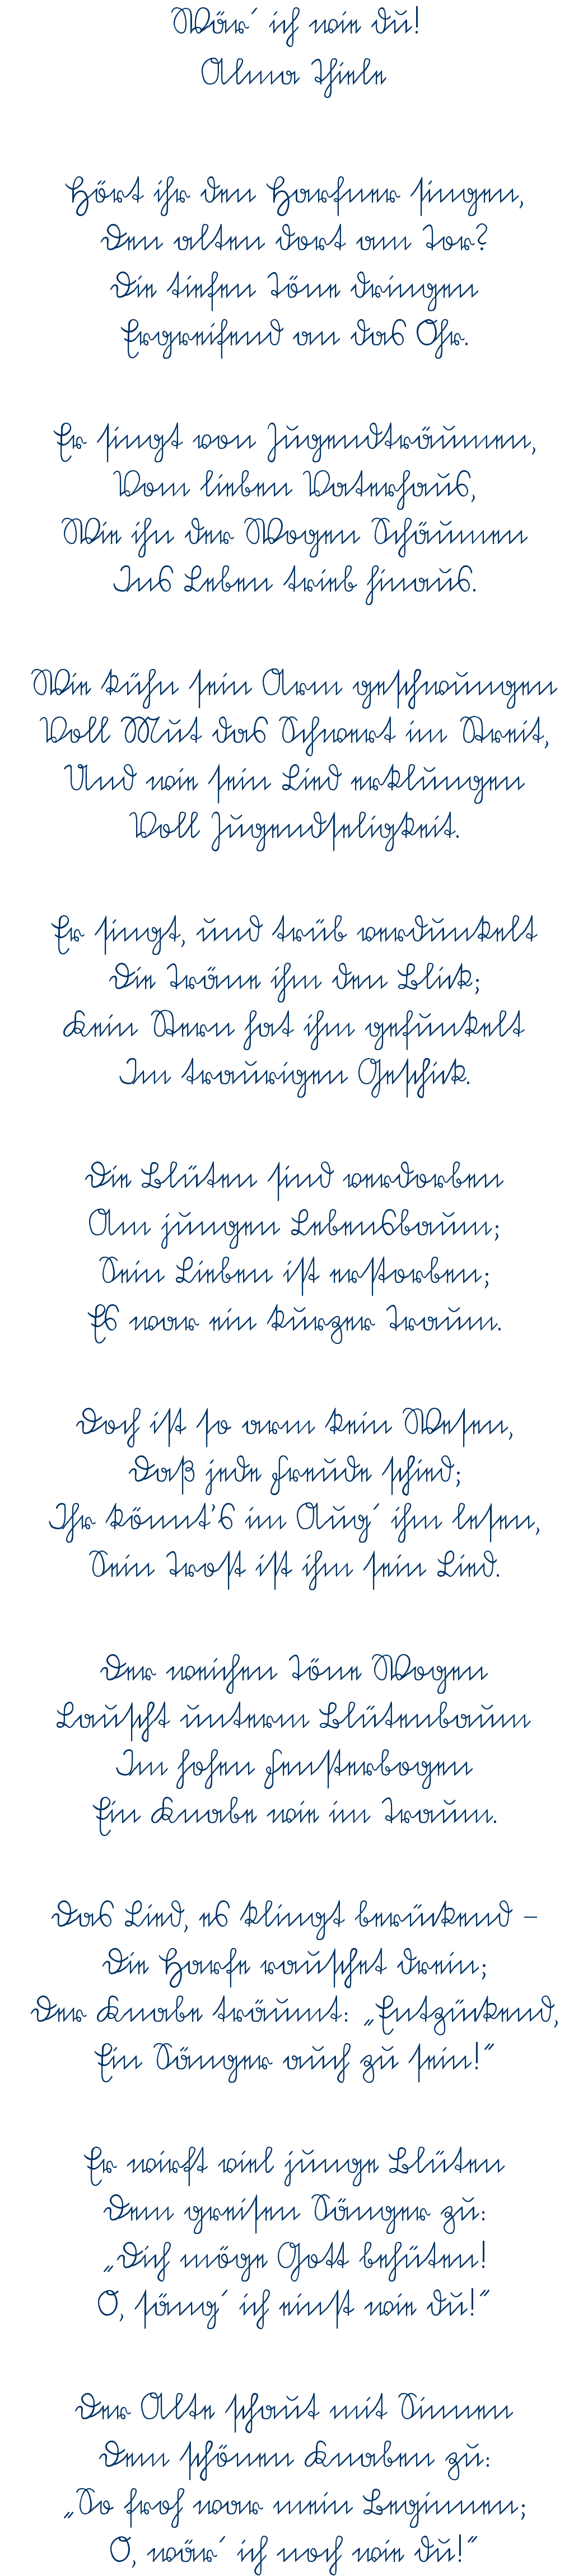 Wär´ ich wie du!
Alma Thiele
Hört ihr den Harfner singen,
Den alten dort am Tor?
Die tiefen Töne dringen
Ergreifend an das Ohr.
Er singt von Jugendträumen,
Vom lieben Vaterhaus,
Wie ihn der Wogen Schäumen
Ins Leben trieb hinaus.
Wie kühn sein Arm geschwungen
Voll Mut das Schwert im Streit,
Und wie sein Lied erklungen
Voll Jugendseligkeit.
Er singt, und trüb verdunkelt
Die Träne ihm den Blick;
Kein Stern hat ihm gefunkelt
Im traurigen Geschick.
Die Blüten sind verdorben
Am jungen Lebensbaum;
Sein Lieben ist erstorben;
Es war ein kurzer Traum.
Doch ist so arm kein Wesen,
Daß jede Freude schied;
Ihr könnt's im Aug´ ihm lesen,
Sein Trost ist ihm sein Lied.
Der weichen Töne Wogen
Lauscht unterm Blütenbaum
Im hohen Fensterbogen
Ein Knabe wie im Traum.
Das Lied, es klingt berückend –
Die Harfe rauschet drein;
Der Knabe träumt: „Entzückend,
Ein Sänger auch zu sein!“
Er wirft viel junge Blüten
Dem greisen Sänger zu:
„Dich möge Gott behüten!
O, säng´ ich einst wie du!“
Der Alte schaut mit Sinnen
Dem schönen Knaben zu:
„So froh war mein Beginnen;
O, wär´ ich noch wie du!“